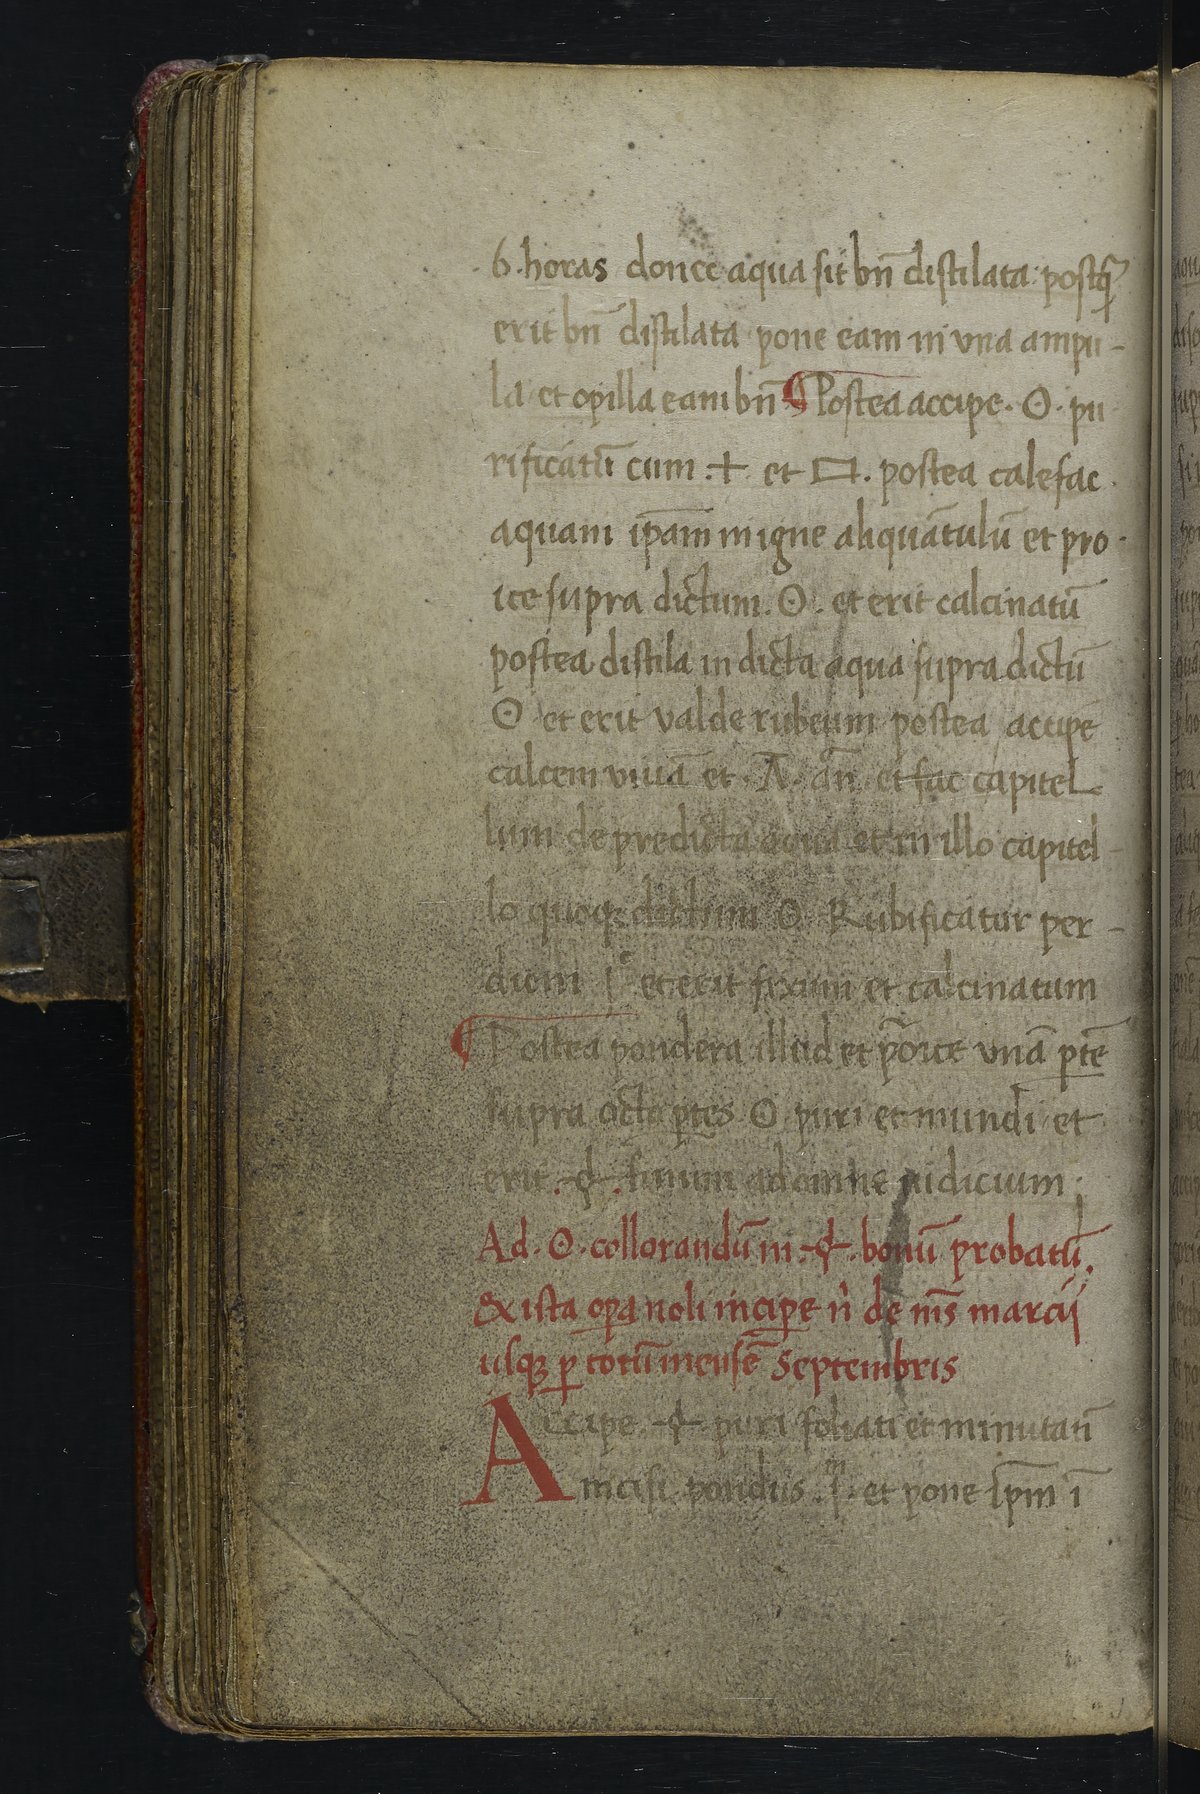 6. horas donec aqua sit bn̄ distilata postq̄
erit bn̄ distilata pone eam in vna ampu-
la et opilla eam bn̄ ¶ Postea accipe. ʘ. pu
rificatū cum .+ et ▭. postea calefac
aquam ip̄am in igne aliquātulū et pro-
ice supra dictum. ʘ. et erit calcinatū
postea distila in dicta aqua supra dictū
ʘ et erit valde rubeum postea accipe
calcem viuā et. A. an̄. et fac capitel
lum de predicta aqua et in illo capitel-
lo quoq; dictum ʘ Rubificatur per-
diom et erit fixum et calcinatum
¶ Postea pondera illud et p̄oice vnā p̱tē
supra octo p̱tes ʘ puri et mundi et
erit finum ad omne iudicium;
Ad. ʘ. collorandū in bonū probatū.
Et ista opa noli incipe n̄ de m̄s marcij
usq; p̱ totū mensē Septembris
Accipe puri foliati et minutatī
incisi pondus .ʃ.ᵐ et pone ip̄m ī